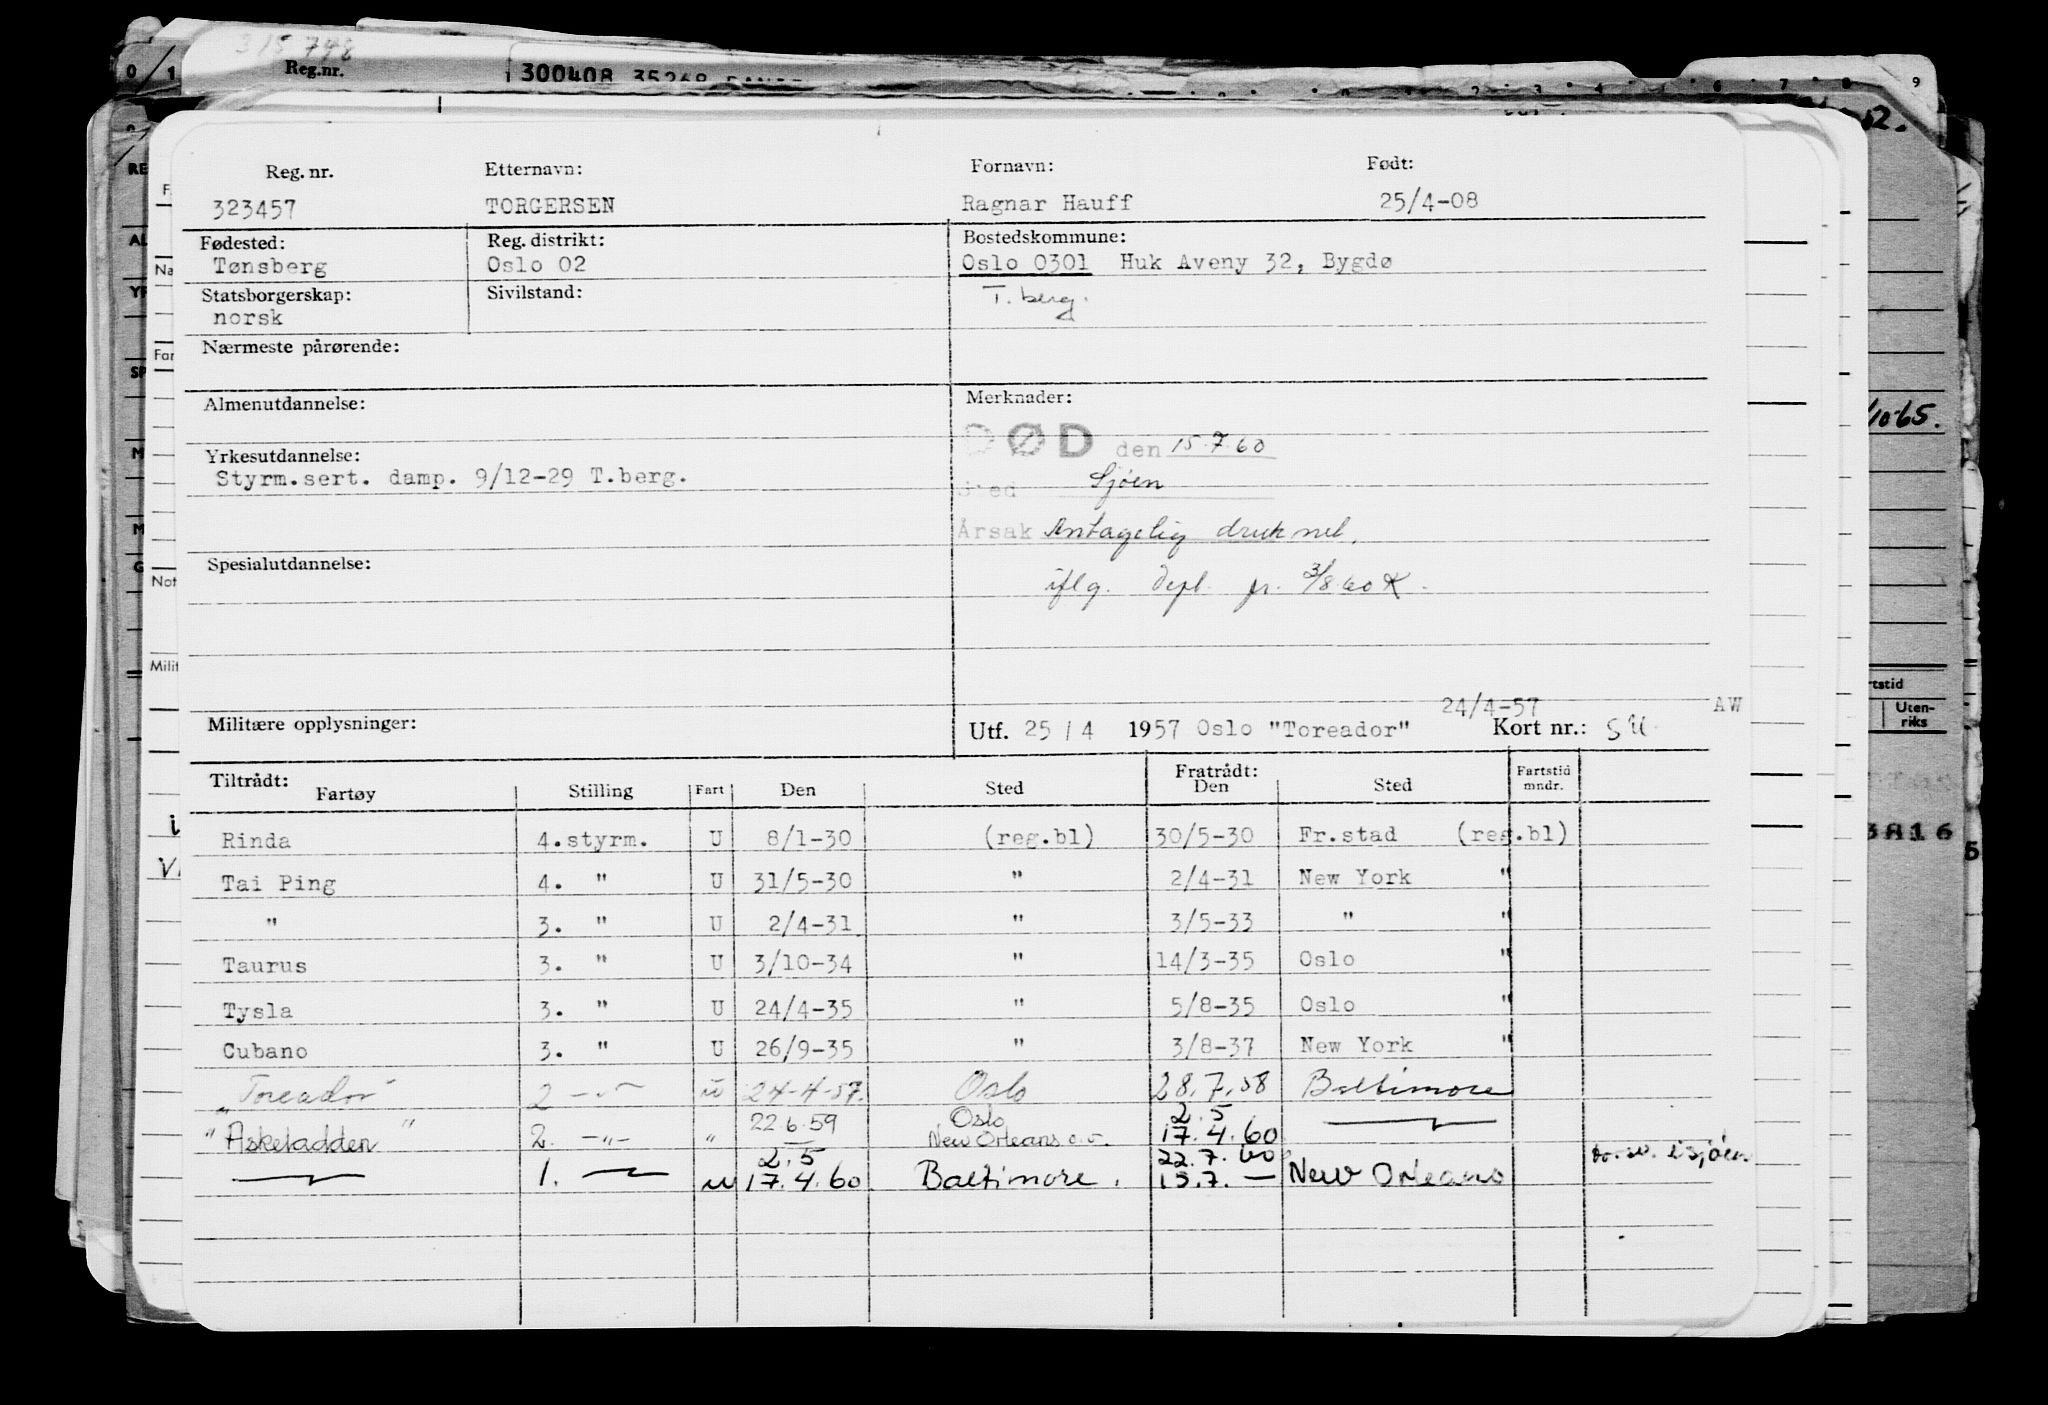 315 748
Reg.nr.
300408 35268
Reg. nr. Etternavn: Fornavn: Født:
323457 TORGERSEN Ragnar Hauff 25/4-08
Fødested: Reg. distrikt: Bostedskommune:
Tønsberg Oslo 02 Oslo 0301 Huk Aveny 32, Bygdø
Statsborgerskap: Sivilstand: T. berg.
norsk
Nærmeste pårørende:
Almenutdannelse: Merknader:
DØD den 15.7.60
Yrkesutdannelse:
Styrm.sert. damp. 9/12-29 T.berg.
Sted Sjøen
Årsak Antagelig druknet,
Spesialutdannelse:
iflg. Depl. fr. 3/8.60 K.
24/4-57 AW
Militære opplysninger: Utf. 25/4 1957 Oslo "Toreador" Kort nr.: SU.
Tiltrådt: Fratrådt: Fartstid
Fartøy Stilling Fart Den Sted Den Sted mndr.
Rinda 4.styrm. U 8/1-30 (reg.bl) 30/5-30 Fr.stad (reg.bl)
Tai Ping 4. " U 31/5-30 " 2/4-31 New York "
" 3. " U 2/4-31 " 3/5-33 " "
Taurus 3. " U 3/10-34 " 14/3-35 Oslo "
Tysla 3. " U 24/4-35 " 5/8-35 Oslo "
Cubano 3. " U 26/9-35 " 3/8-37 New York "
"Toreador" 2 -"- u 24-4-57. Oslo 28.7.58 Baltimore
22.6.59 Oslo 2.5
"Askeladden" 2. -"- " New Orleans 17.4.60
2.5 22.7.60 i sjøen
1. u 17.4.60 Baltimore. 15.7. — New Orleans